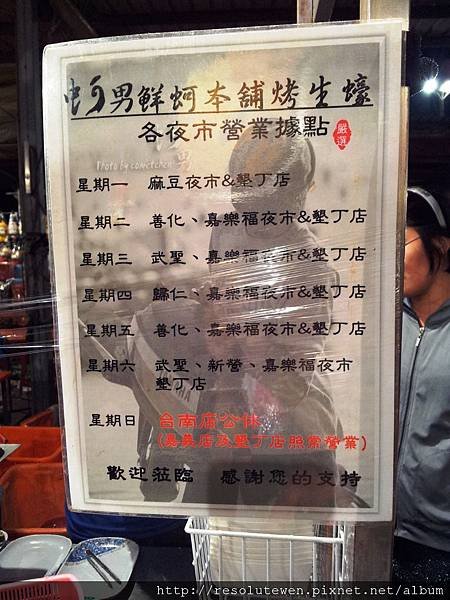 蚵男鮮蚵本舖烤生蠔
各夜市營業據點
嚴選
Photo by comicchen
男
星期一 麻豆夜市&墾丁店
星期二 善化、嘉樂福夜市&墾丁店
星期三 武聖、嘉樂福夜市&墾丁店
星期四 歸仁、嘉樂福夜市&墾丁店
星期五 善化、嘉樂福夜市&墾丁店
星期六 武聖、新營、嘉樂福夜市
墾丁店
星期日 台南店公休
(嘉義店及墾丁店照常營業)
歡迎蒞臨 感謝您的支持
http://resolutewen.pixnet.net/album